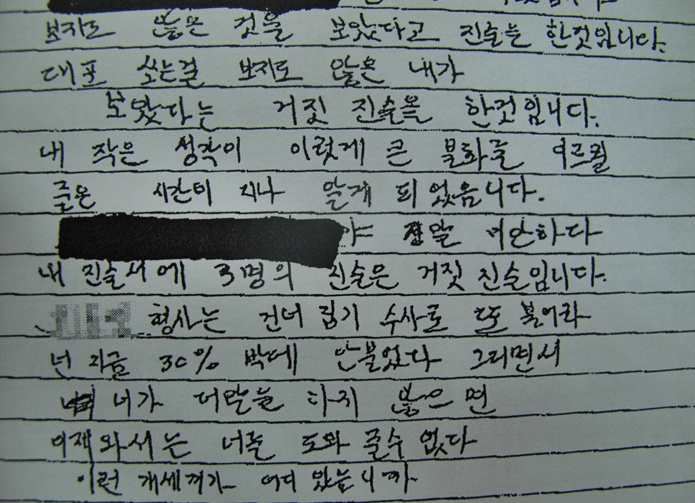 보지도 않은 것을 보았다고 진술는 한것입니다.
대포 쏘는걸 보지도 않은 내가
보왔다는 거짓 진술을 한것입니다.
내 작은 생각이 이렇게 큰 불화를 이르킬
줄은 시간이 지나 알게 되었음니다.
야 정말 미안하다
내 진술서에 3명의 진술은 거짓 진술입니다.
형사는 건너 립기 수사로 또 불어라
넌 지금 30% 박에 안불었다 그러면서
너가 더말들 다지 않으면
이재와서는 너를 도와 줄수 없다
이런 개세끼가 어디 있습니까.